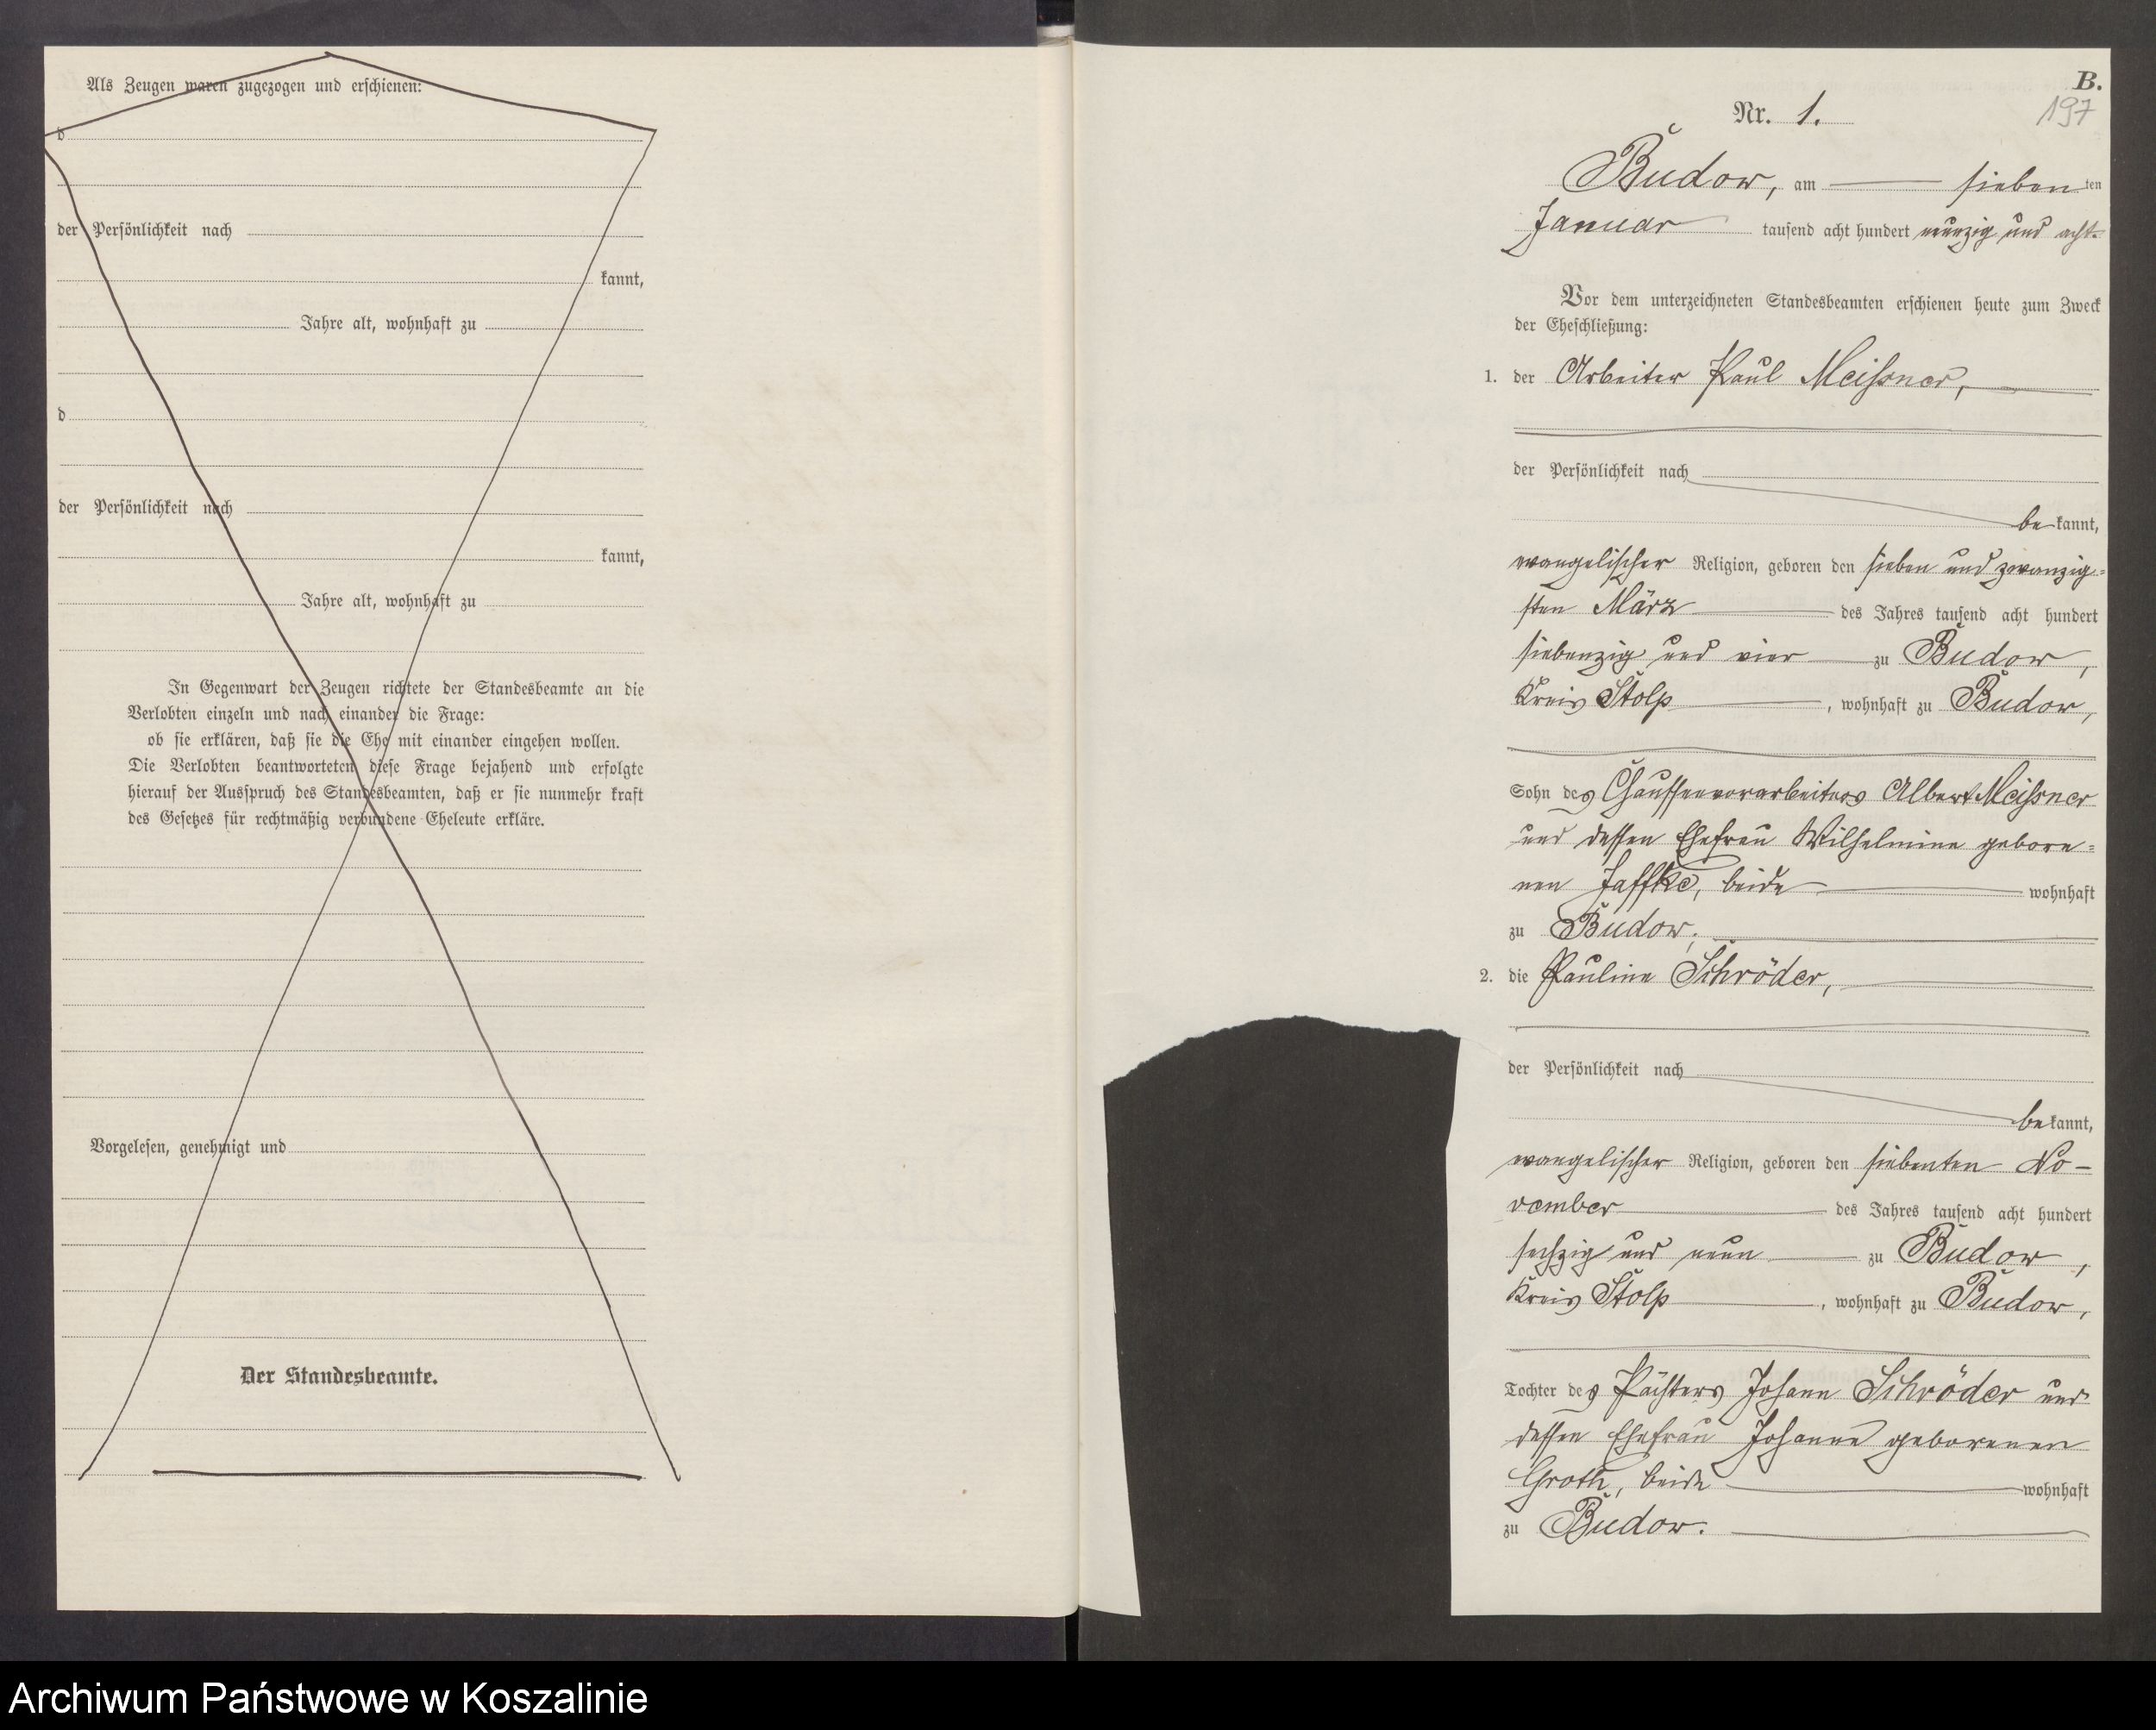 Als Zeugen waren zugezogen und erschienen:
d
der Persönlichkeit nach
kannt,
Jahre alt, wohnhaft zu
d
der Persönlichkeit nach
kannt,
Jahre alt, wohnhaft zu
In Gegenwart der Zeugen richtete der Standesbeamte an die
Verlobten einzeln und nach einander die Frage:
ob sie erklären, daß sie die Ehe mit einander eingehen wollen.
Die Verlobten beantworteten diese Frage bejahend und erfolgte
hierauf der Ausspruch des Standesbeamten, daß er sie nunmehr kraft
des Gesetzes für rechtmäßig verbundene Eheleute erkläre.
Vorgelesen, genehmigt und
Der Standesbeamte.
B.
197
Nr. 1.
Budow, am siebenten
Januar tausend acht hundert neunzig und acht.
Vor dem unterzeichneten Standesbeamten erschienen heute zum Zweck
der Eheschließung:
1. der Arbeiter Paul Meißner,
der Persönlichkeit nach
bekannt,
evangelischer Religion, geboren den sieben und zwanzig=
sten März des Jahres tausend acht hundert
siebenzig und vier zu Budow,
Kreis Stolp, wohnhaft zu Budow,
Sohn des Chausseevorarbeiters Albert Meißner
und dessen Ehefrau Wilhelmine gebore=
nen Jaffke, beide wohnhaft
zu Budow;
2. die Pauline Schröder,
der Persönlichkeit nach
bekannt,
evangelischer Religion, geboren den siebenten No-
vember des Jahres tausend acht hundert
sechzig und neun zu Budow,
Kreis Stolp, wohnhaft zu Budow,
Tochter des Pächters Johann Schröder und
dessen Ehefrau Johanne geborenen
Groth, beide wohnhaft
zu Budow.
Archiwum Państwowe w Koszalinie